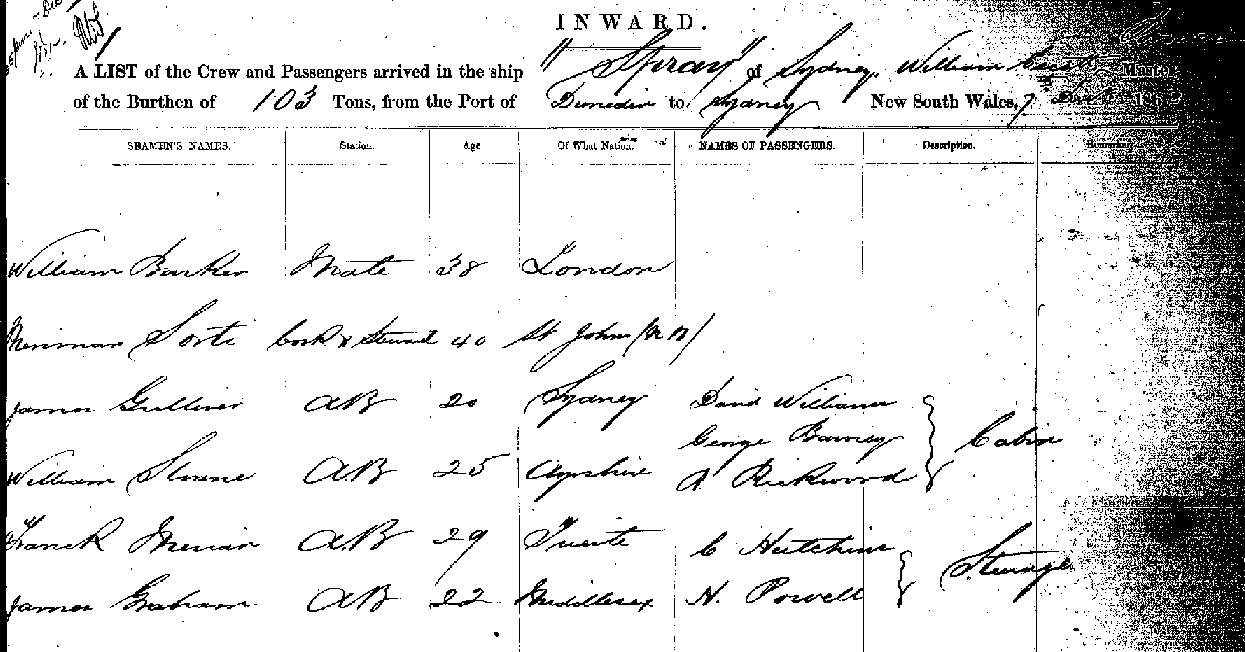 INWARD.
A LIST of the Crew and Passengers arrived in the ship "Spray" of Sydney, William Master
of the Burthen of 103 Tons, from the Port of Dunedin to Sydney New South Wales, 7 186
SEAMEN'S NAMES. Station. Age Of What Nation. NAMES OF PASSENGERS. Description. Remarks
William Barker Mate 38 London
Sorti Cook & Steward 40 St Johns (N B)
James Gulliver AB 20 Sydney David Williams
George Barney Cabin
William Sloane AB 25 Ayrshire A Rickwood
Franck AB 29 Trieste C Hutchins
Steerage
James Graham AB 22 Middlesex N. Powell